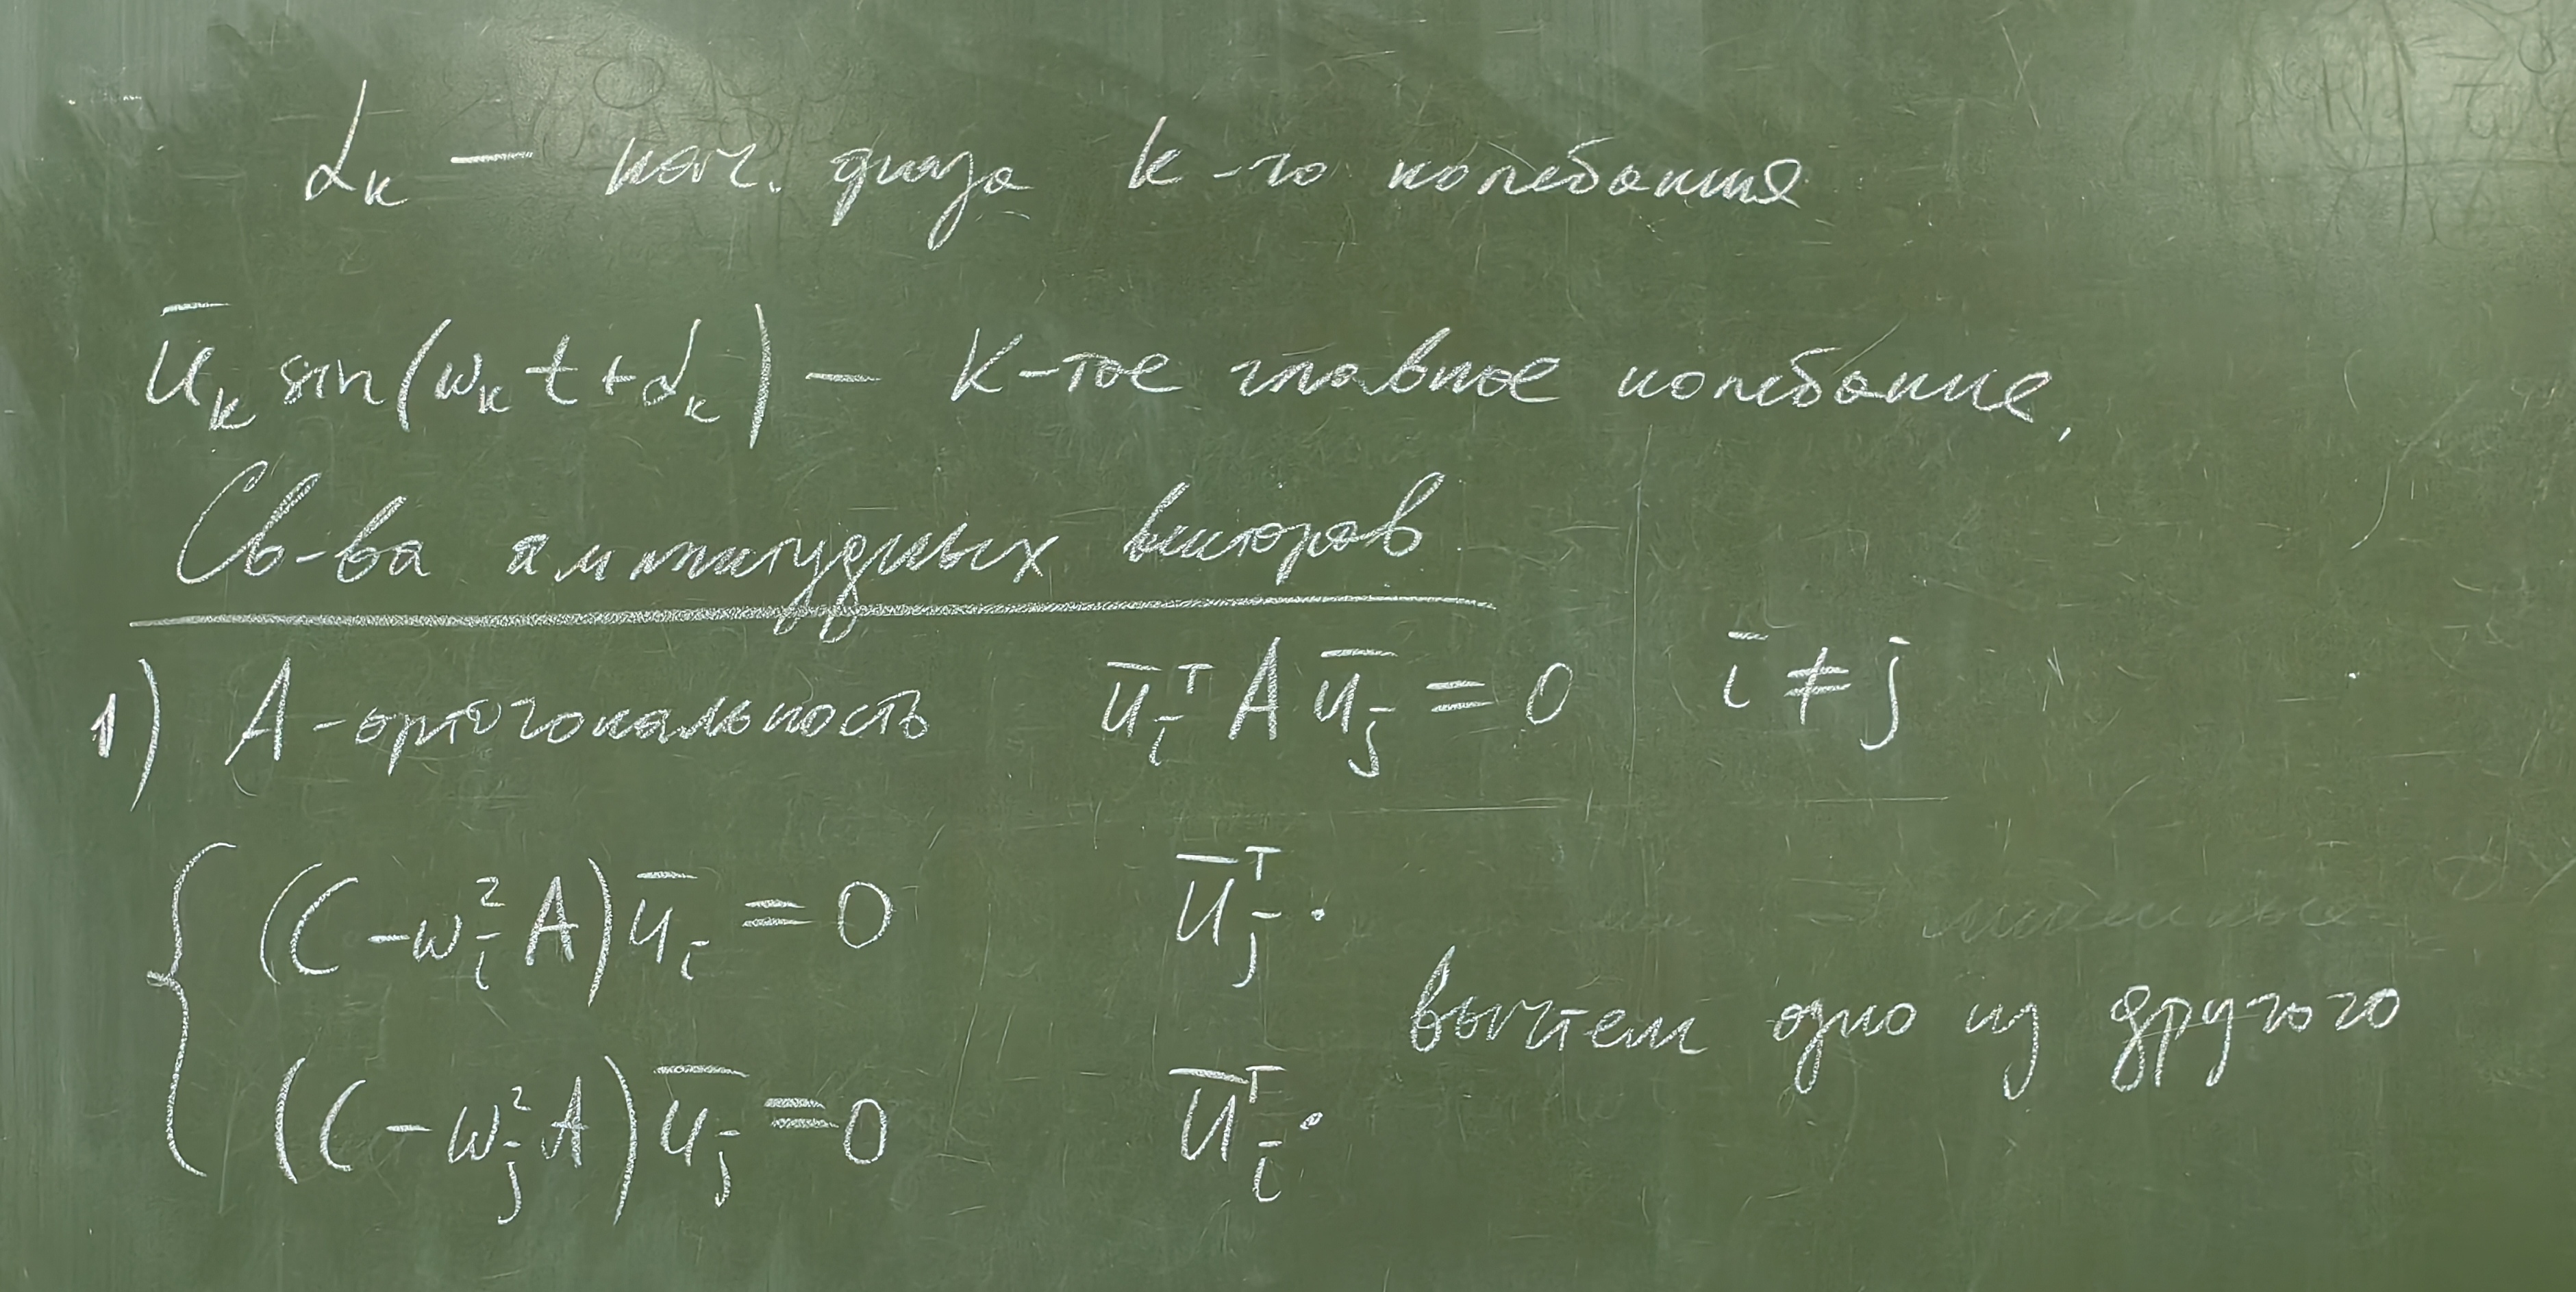 α_k — нач. фаза k-го колебания
ū_k sin(ω_k t + α_k) — K-тое главное колебание,
Св-ва амплитудных векторов
1) A-ортогональность ū_i^T A ū_j = 0 i ≠ j
(C - ω_i^2 A) ū_i = 0 ū_j^T ·
вычтем одно из другого
(C - ω_j^2 A) ū_j = 0 ū_i^T ·